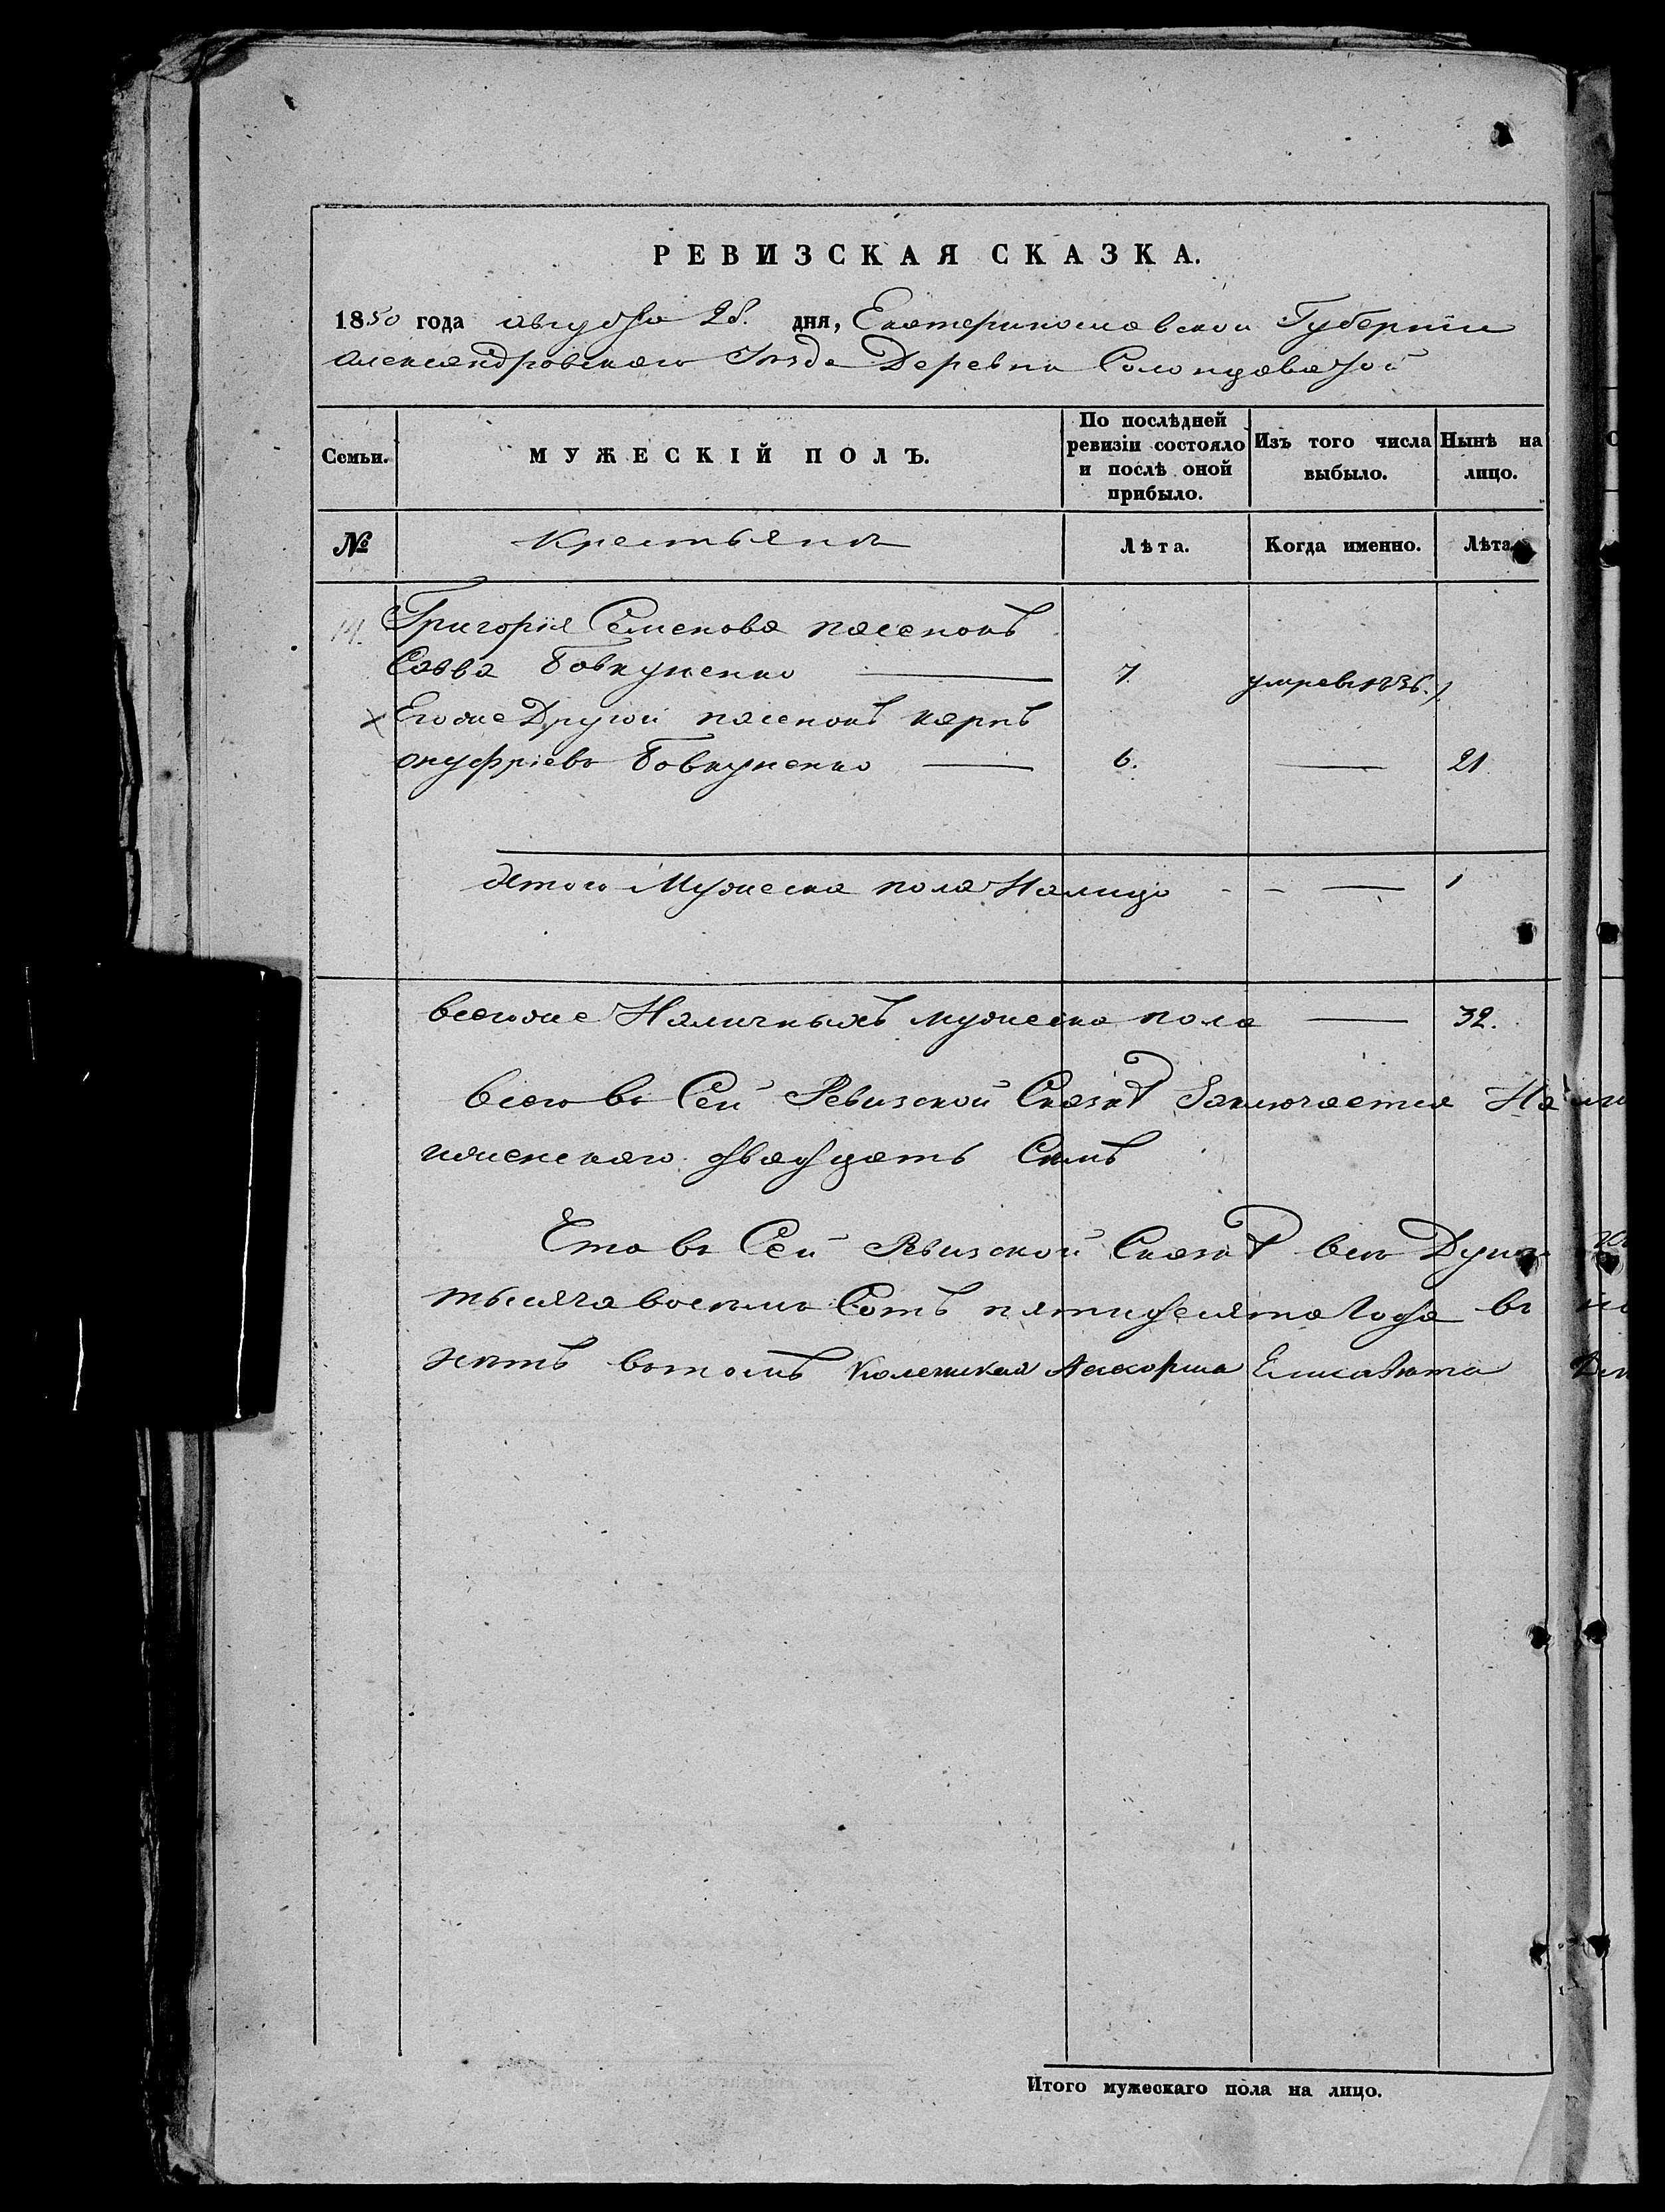 РЕВИЗСКАЯ СКАЗКА.
1850 года августа 28. дня, Екатеринославской Губернии
александровскаго Уезда Деревни Солонцеватой
Семьи.
МУЖЕСКІЙ ПОЛЪ.
По послѣдней ревизіи состояло и послѣ оной прибыло.
Изъ того числа выбыло.
Нынѣ на лицо.
№
Крестьяне
Лѣта.
Когда именно.
Лѣта.
14. Григорія Семенова пасенокъ
Савва Бовкуненко 7. умре въ 1836.
Егоже Другой пасенокъ карпъ
онуфріевъ Бовкуненко 6. 21
Итого Мужеска пола Налицо 1
всегоже Наличныхъ мужеска пола 32.
всего въ Сей Ревизской Сказкѣ Заключается На
женскаго двадцать Семь
Что въ Сей Ревизской Сказкѣ все Души
тысяча восемь Сотъ пятидесята года въ
жить въ томъ Колежская Асесорша Елисавета
Итого мужескаго пола на лицо.